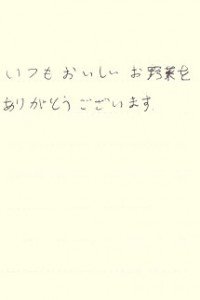 いつもおいしいお野菜を
ありがとうございます